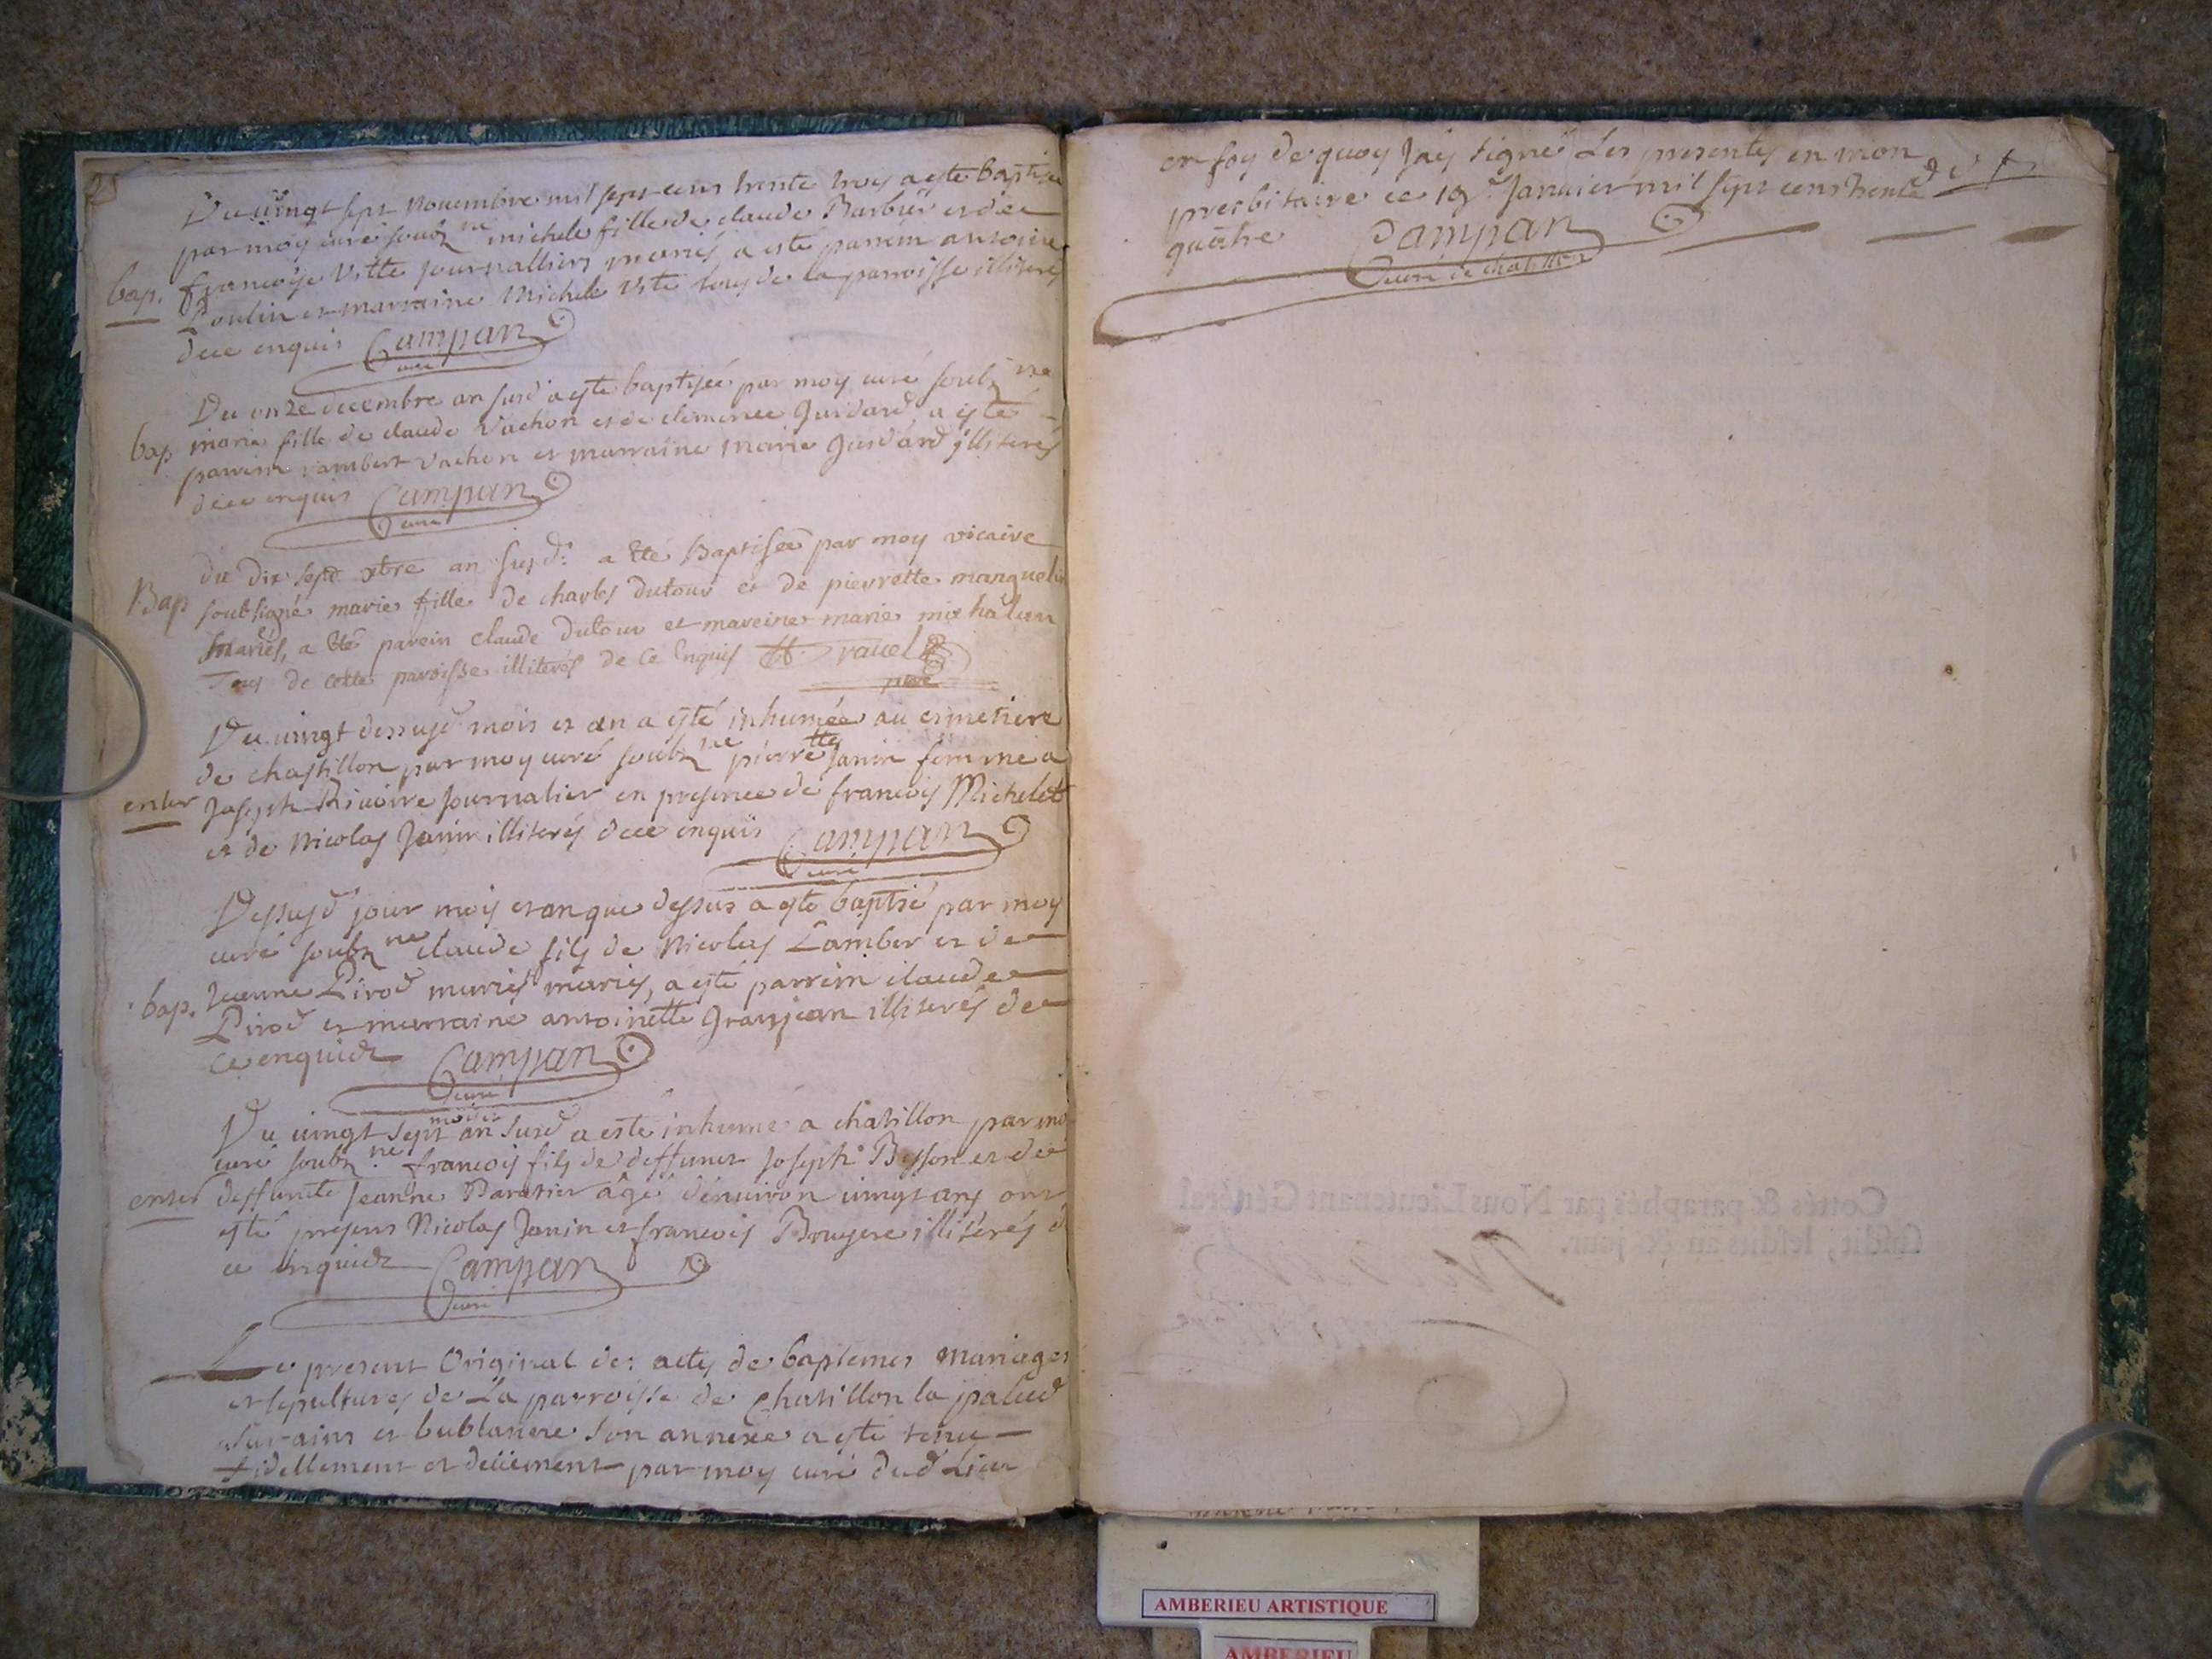 Du vingt sept novembre mil sept cens trente trois a este baptisee
par moy curé soubz né michele fille de claude Barbier et de
bap. françoise Vitte journalliers mariés a esté parrein antoine
Poulin et marraine Michele Vite tous de la parroisse illiterés
dece enquis Campan
curé
Du onze decembre an susd a esté baptisée par moy curé soubz né
bap marie fille de claude Vachon et de clemence Guidard a esté
parrein rambert Vachon et marraine marie Guidard illiterés
dece enquis Campan
curé
du dix sept xbre an susd. a été Baptisée par moy vicaire
Bap soubsigné marie fille de charles dutour et de pierrette manguelin
mariés, a été parein claude dutour et mareine marie michalun
Tous de cette paroisse illiterés de ce Enquis ravel
ptre
Du vingt dessusd mois et an a esté inhumée au cimetiere
de chastillon par moy curé soubz né pierrette Janin femme a
enter Joseph Rivoire Journalier en presence de françois Michelet
et de Nicolas Janin illiterés dece enquis Campan
curé
Dessusd jour mois et an que dessus a esté baptisé par moy
curé soubz né claude fils de Nicolas Lamber et de
bap. Jeanne Pirod mariés mariés, a esté parrein claude
Pirod et marraine antoinette Granjean illiterés de
ce enquidz Campan
curé
Du vingt sept mois an susd a esté inhumé a chatillon par moy
curé soubz né. françois fils de deffunct Joseph Besson et de
enter deffuncte Jeanne Baratier âgé denviron vingt ans ont
esté presens Nicolas Janin et françois Bruyere illiterés d
ce enquidz Campan
curé
Le present Original des actes de baptemes mariages
et sepultures de La parroisse de Chatillon la palud
Sur ains et bublanne son annexe a esté tenu
fidellement et deüement par moy curé dud Lieu
en foy de quoy Jay signé Les presentes en mon
presbitaire ce 19e Janvier mil sept cens trente
quatre Campan
curé de chatillon
Cottés & paraphés par Nous Lieutenant Général
susdit, lesdits an & jour.
AMBERIEU ARTISTIQUE
AMBERIEU